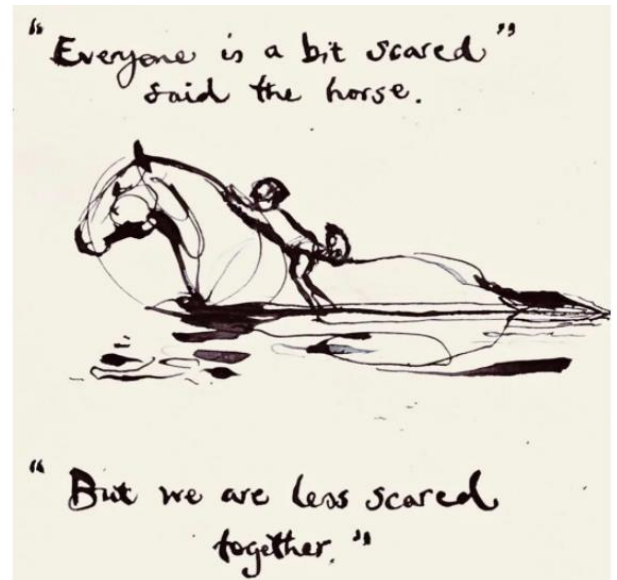 "Everyone is a bit scared"
said the horse.
"But we are less scared
together."